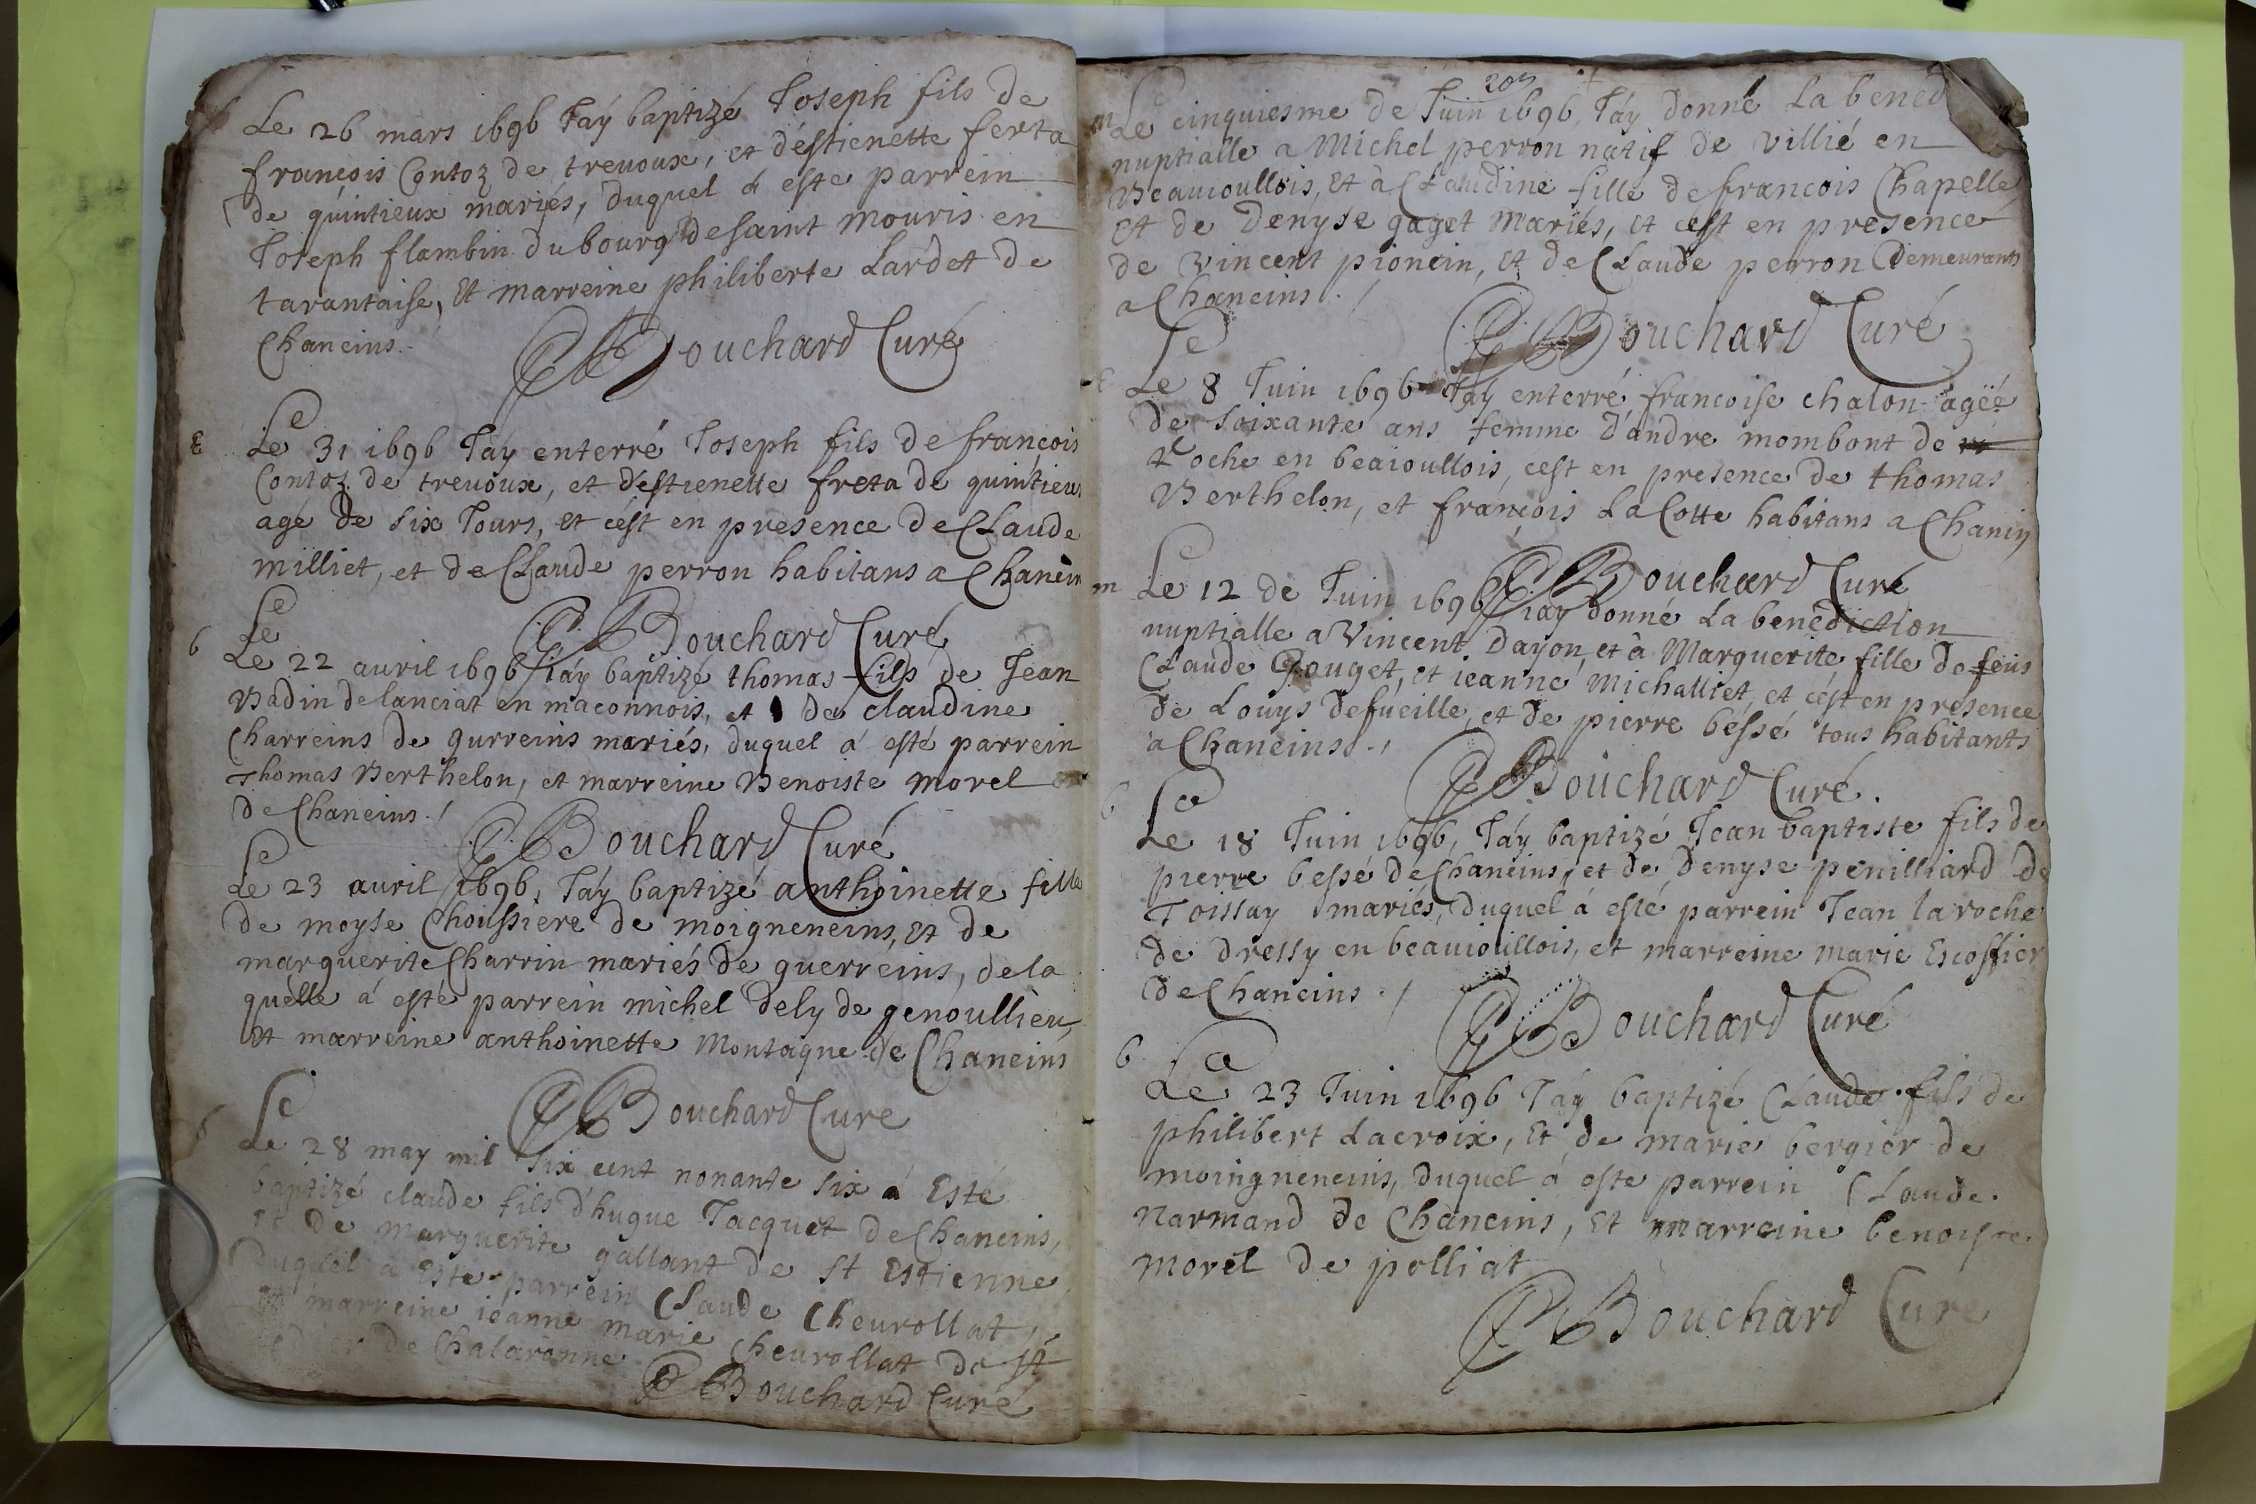 Le 26 mars 1696 Jáy baptizé Joseph fils de
françois Contoz de trevoux, et d'éstienette ferta
de quintieux mariés, duquel á este parrein
Joseph flambin du bourg de saint Mouris en
tarantaise, Et marreine philiberte Lardet de
Chaneins.
Bouchard Curé
E
Le 31 1696 Jáy enterré Joseph fils de françois
Contoz de trevoux, et d'éstienette freta de quintieux
agé de six Jours, et c'ést en presence de Claude
milliet, et de Claude perron habitans a Chanein
Bouchard Curé
b
Le 22 auril 1696 Jáy baptizé thomas fils de Jean
Badin de lanciat en maconnois, et de claudine
Charreins de gurreins mariés, duquel á esté parrein
Thomas Berthelon, et marreine Benoiste morel
de Chaneins./
Bouchard Curé
Le 23 auril 1696, Jáy baptizé anthoinette fille
de moyse Choussiere de moigneneins, Et de
marguerite Charrin mariés de guerreins, de la
quelle á esté parrein michel dely de genoullieu,
Et marreine anthoinette Montagne de Chaneins
Bouchard Cure
b
Le 28 may mil six cent nonante six á Esté
baptizé claude fils d'hugue Jacquet de Chaneins,
et de marguerite gallant de st Estienne
duquel a Este parrein Claude Cheurollat,
et marreine ieanne marie Cheurollat de st
de Chalaronne
Bouchard Curé
203
m
Le cinquiesme de Juin 1696, Jáy donné La bened
nuptialle a Michel perron natif de villié en
Beauioullois, Et à Claudine fille de francois Chapelle
et de Denyse gaget Mariés, et c'est en presence
de vincent pionein, et de Claude perron Demeurants
a Chaneins./
Bouchard Curé
E
Le 8 Juin 1696 Jáy enterré francoise chalon ageé
de soixante ans femme d'andre mombont de
Roche en beaioullois, cest en presence de thomas
Berthelon, et françois La Cotte habitans a Chanin
Bouchard Curé
m
Le 12 de Juin 1696 iay donné La benediction
nuptialle a Vincent Dayon, et à Marguerite fille de feus
Claude Gouget, et ieanne Michalliet, et c'ést en presence
de Louys defueille, et de pierre bessé tous habitants
a Chaneins./
Bouchard Curé.
b
Le 18 Juin 1696, Jáy baptizé Jean baptiste fils de
pierre bessé de Chaneins, et de Denyse penilliard de
Toissay mariés, duquel á esté parrein Jean laroche
de dressy en beauioullois, et marreine marie Escoffier
de Chaneins./
Bouchard Curé
b
Le 23 Juin 1696 Jáy baptizé Claude fils de
philibert Lacroix, Et de marie bergier de
moingneneins, duquel á este parrein Claude
Narmand de Chaneins, Et marreine benoiste
morel de polliat
Bouchard Cure